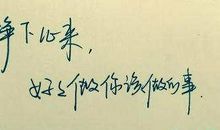 静下心来，
好好做你该做的事.